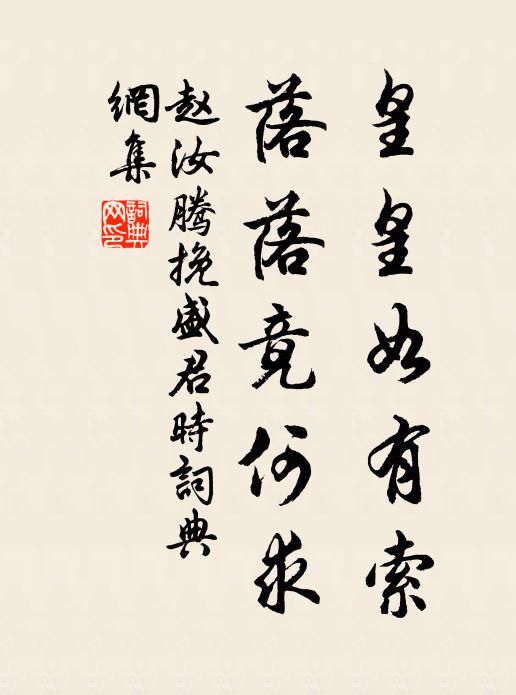 皇皇如有索
落落竟何求
赵汝腾挽盛君時詞典
網集
詞典網印